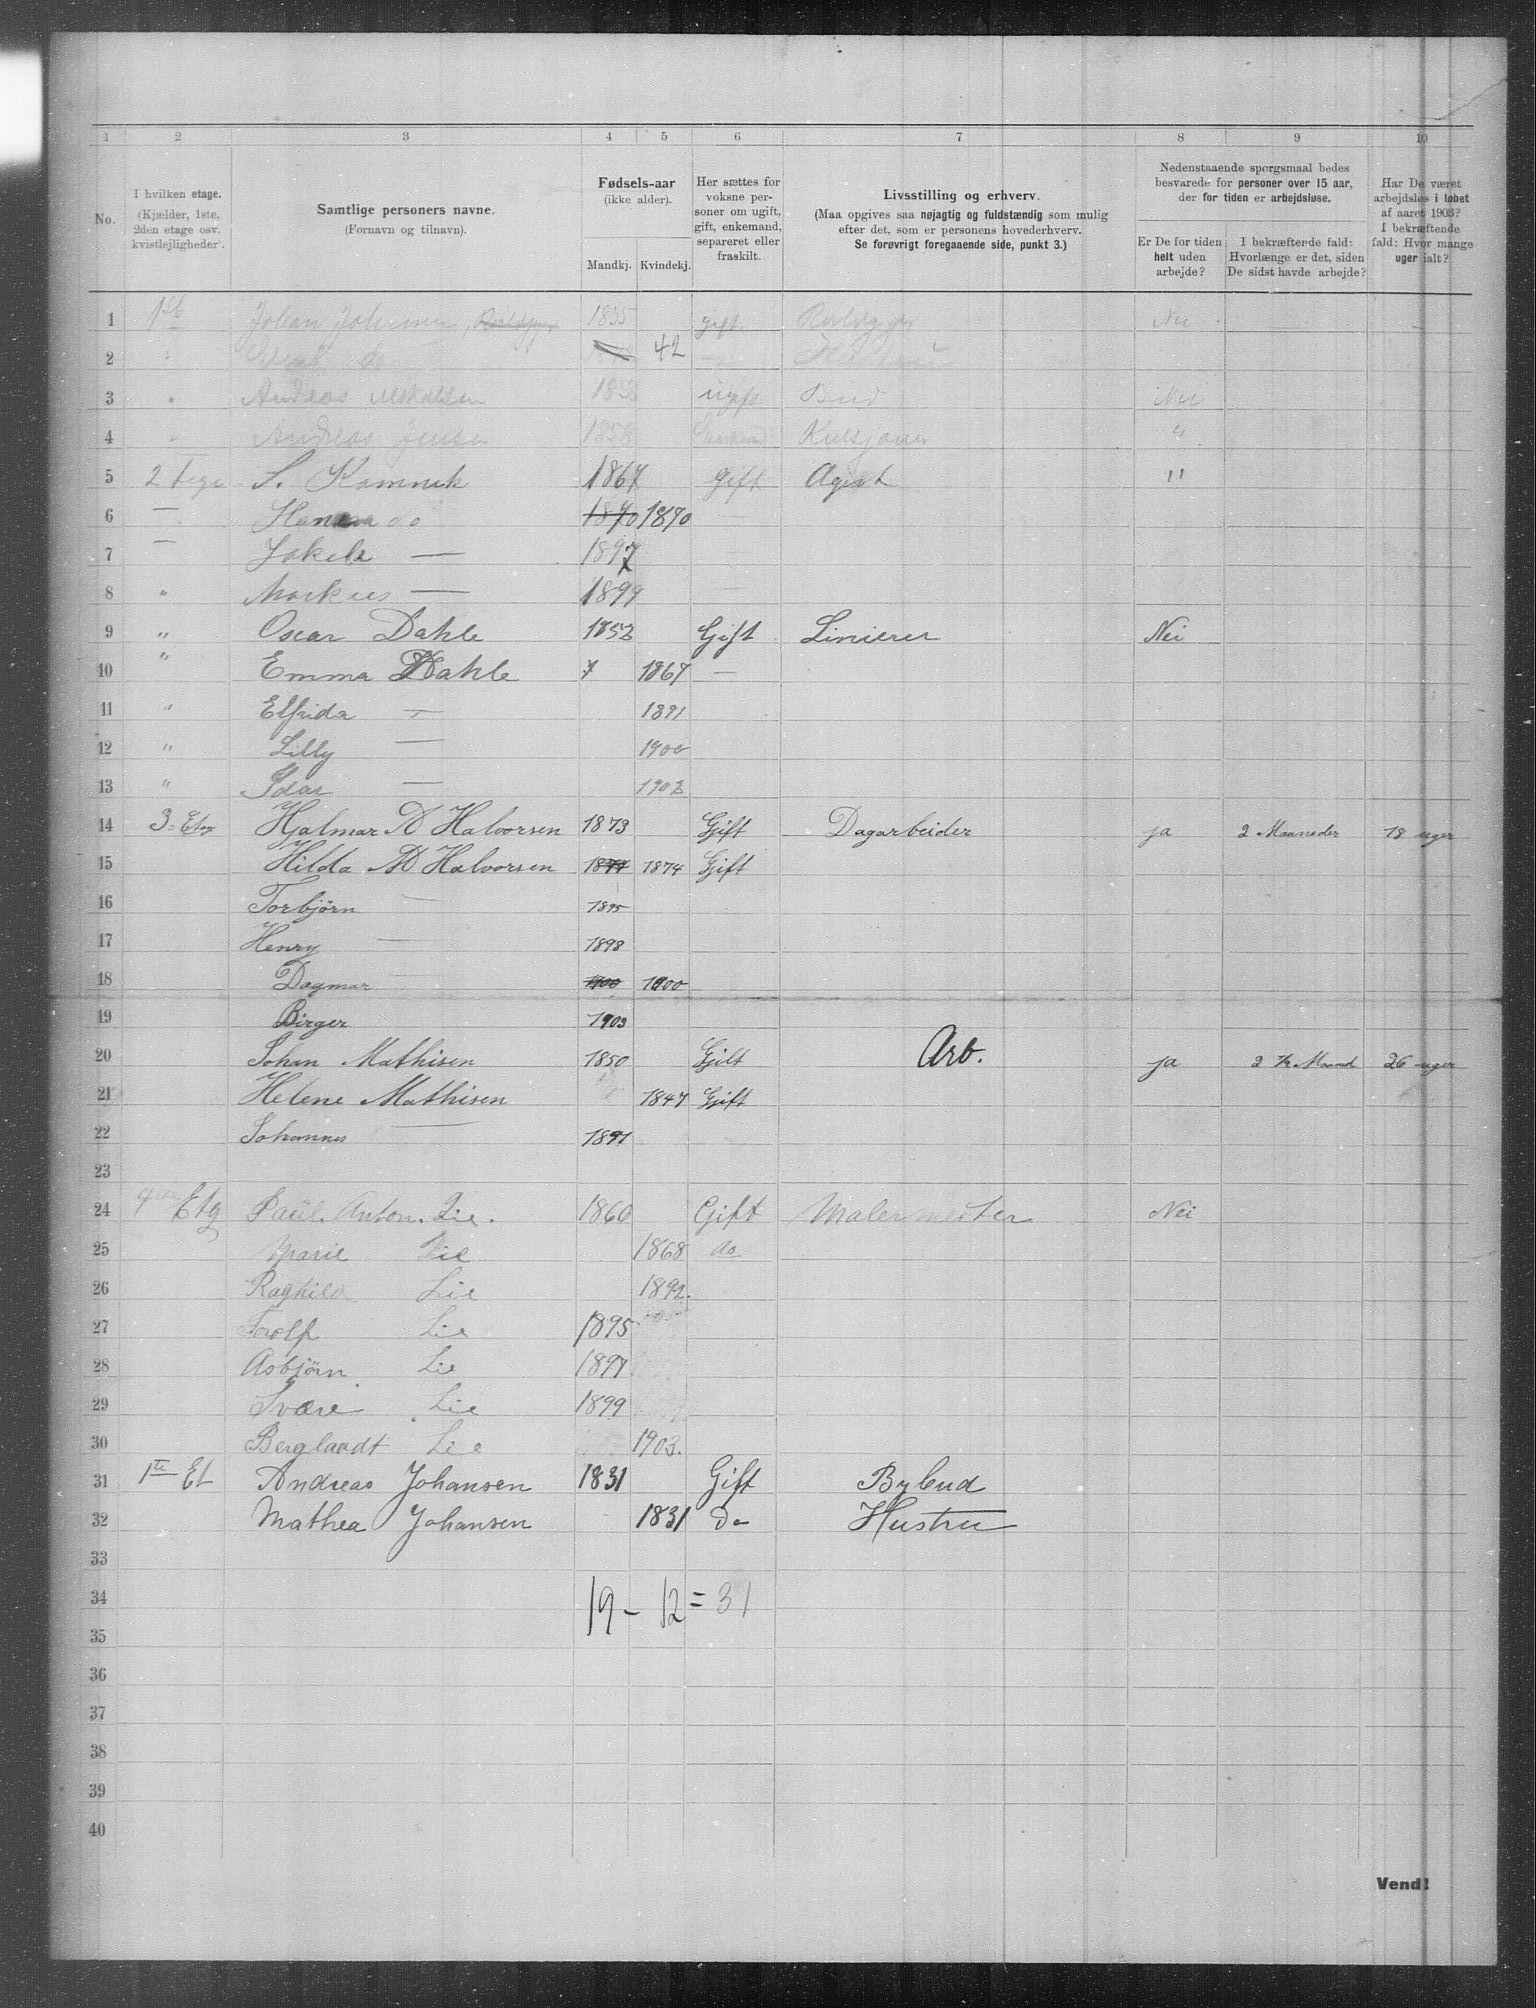 1 2 3 4 5 6 7 8 9 10
No.
I hvilken etage.
(Kjælder, 1ste,
2den etage osv.
kvistlejligheder).
Samtlige personers navne.
(Fornavn og tilnavn).
Fødsels-aar
(ikke alder).
Mandkj. Kvindekj.
Her sættes for
voksne per-
soner om ugift,
gift, enkemand,
separeret eller
fraskilt.
Livsstilling og erhverv.
(Maa opgives saa nøjagtig og fuldstændig som mulig
efter det, som er personens hovederhverv.
Se forøvrigt foregaaende side, punkt 3.)
Nedenstaaende spørgsmaal bedes
besvarede for personer over 15 aar,
der for tiden er arbejdsløse.
Er De for tiden
helt uden
arbejde?
I bekræftende fald:
Hvorlænge er det, siden
De sidst havde arbejde?
Har De været
arbejdsløs i løbet
af aaret 1903?
I bekræftende
fald: Hvor mange
uger ialt?
1 Johan 1835 gift Nei
2 " do 42
3 " Andreas 1838 ugift Bud Nei
4 " Andreas Jensen 1858 "
5 2 S. Komnik 1867 gift Agent "
6 — Hanna do 1870 1870
7 — Jakob — 1897
8 " Markus — 1899
9 " Oscar Dahle 1852 Gift Linierer Nei
10 " Emma Dahle 1867 —
11 " Elfrida — 1891
12 " Lilly — 1900
13 " — 1902
14 3 Etg Hjalmar A Halvorsen 1873 Gift Dagarbeider ja 2 Maaneder 18 uger
15 Hilda M Halvorsen 1874 1874 Gift
16 Torbjörn — 1895
17 Henry — 1898
18 Dagmar — 1900 1900
19 Birger 1903
20 Johan Mathisen 1850 Gift Arb. ja 2 ½ Maaned 26 uger
21 Helene Mathisen 1847 Gift
22 Johannes — 1891
23
24 4 Etg Paul. Anton. Lie. 1860 Gift Malermester Nei
25 Marie Lie 1868 do
26 Raghild Lie 1892.
27 Torolf Lie 1895
28 Asbjörn Lie 1897
29 Svære Lie 1899
30 Berglaodt Lie 1903.
31 1te Et Andreas Johansen 1831 Gift Bybud
32 Mathea Johansen 1831 Do Hustru
33
34 19 – 12 = 31
35
36
37
38
39
40
Vend!